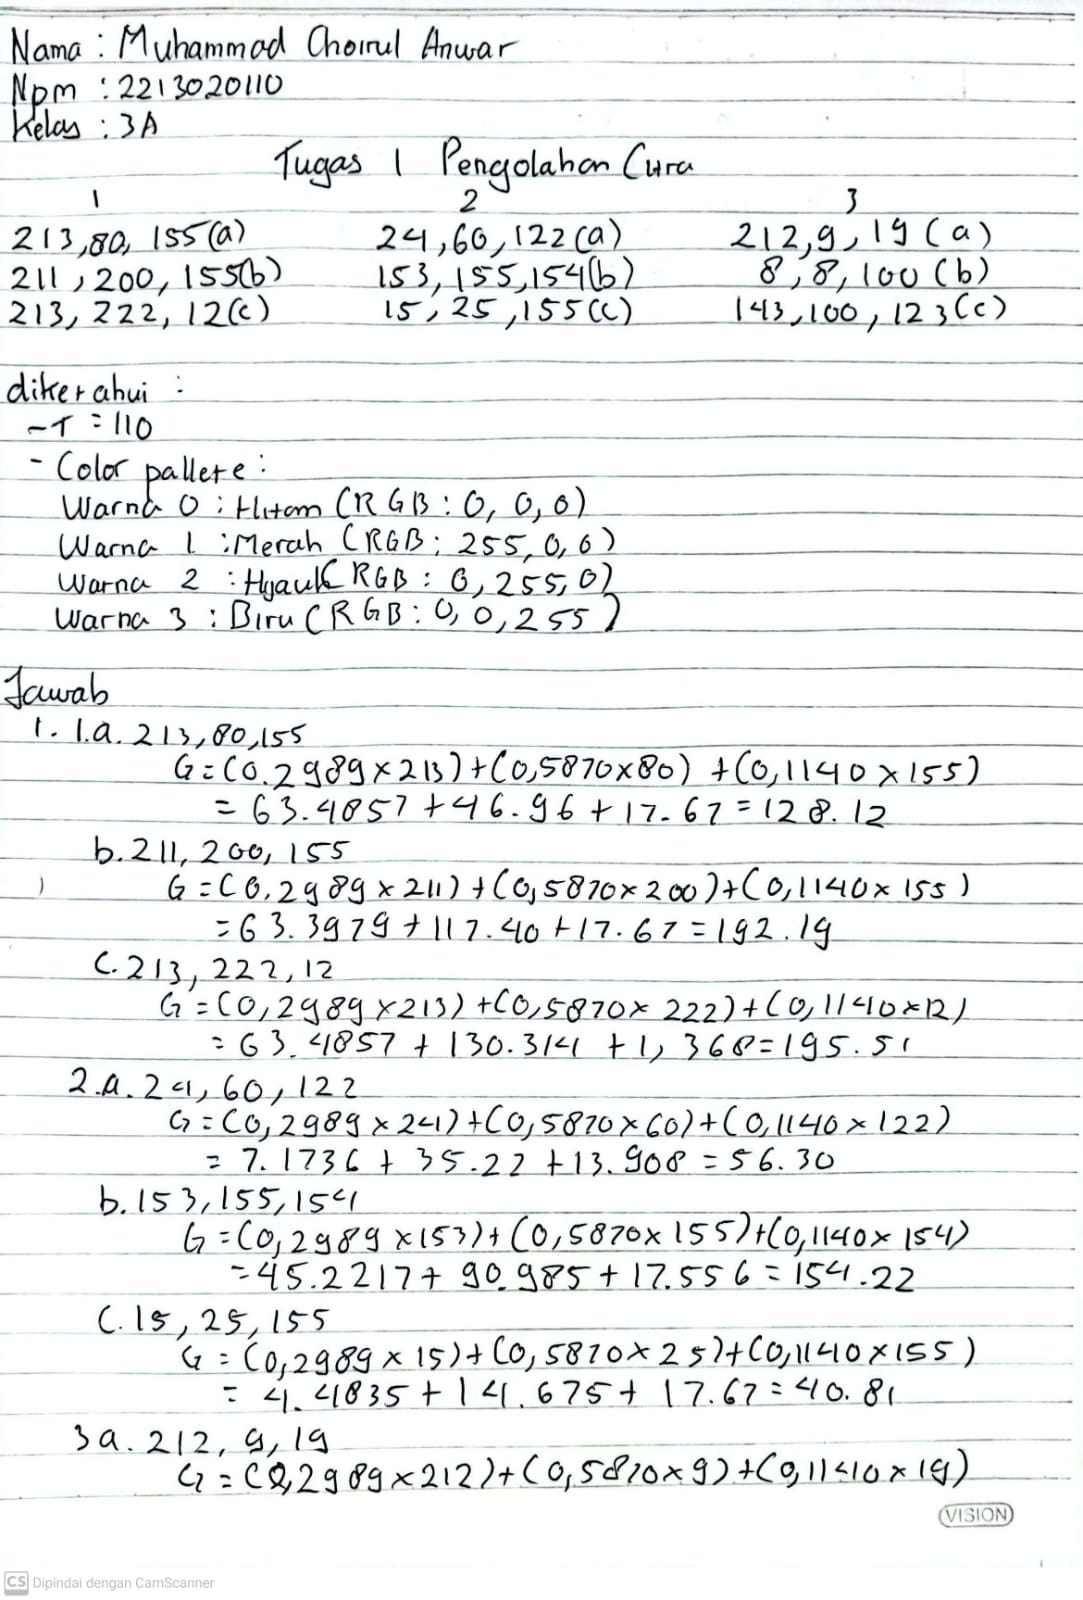 Nama : Muhammad Choirul Anwar
Npm : 2213020110
Kelas : 3A
Tugas 1 Pengolahan Citra
1 2 3
213,80, 155(a) 24,60,122(a) 212,9,19 (a)
211, 200, 155(b) 153,155,154(b) 8,8,100 (b)
213, 222, 12(c) 15, 25,155(c) 143,100, 123(c)
diketahui :
-T = 110
- Color pallete :
Warna 0 : Hitam (RGB : 0, 0, 0)
Warna 1 : Merah (RGB ; 255, 0, 0)
Warna 2 : Hijau (RGB : 0, 255, 0)
Warna 3 : Biru (RGB : 0, 0, 255)
Jawab
1. 1.a. 213,80,155
G = (0.2989 x 213) + (0,5870 x 80) + (0,1140 x 155)
= 63.4857 + 46.96 + 17.67 = 128.12
b. 211, 200, 155
G = (0.2989 x 211) + (0,5870 x 200) + (0,1140 x 155)
= 63.3979 + 117.40 + 17.67 = 192.19
c. 213, 222, 12
G = (0,2989 x 213) + (0,5870 x 222) + (0,1140 x 12)
= 63.4857 + 130.314 + 1,368 = 195.51
2.a. 24, 60, 122
G = (0,2989 x 24) + (0,5870 x 60) + (0,1140 x 122)
= 7.1736 + 35.22 + 13.908 = 56.30
b. 153, 155, 154
G = (0,2989 x 153) + (0,5870 x 155) + (0,1140 x 154)
= 45.2217 + 90.985 + 17.556 = 154.22
c. 15, 25, 155
G = (0,2989 x 15) + (0,5870 x 25) + (0,1140 x 155)
= 4.4835 + 14.675 + 17.67 = 40.81
3a. 212, 9, 19
G = (0,2989 x 212) + (0,5870 x 9) + (0,1140 x 19)
VISION
CS Dipindai dengan CamScanner